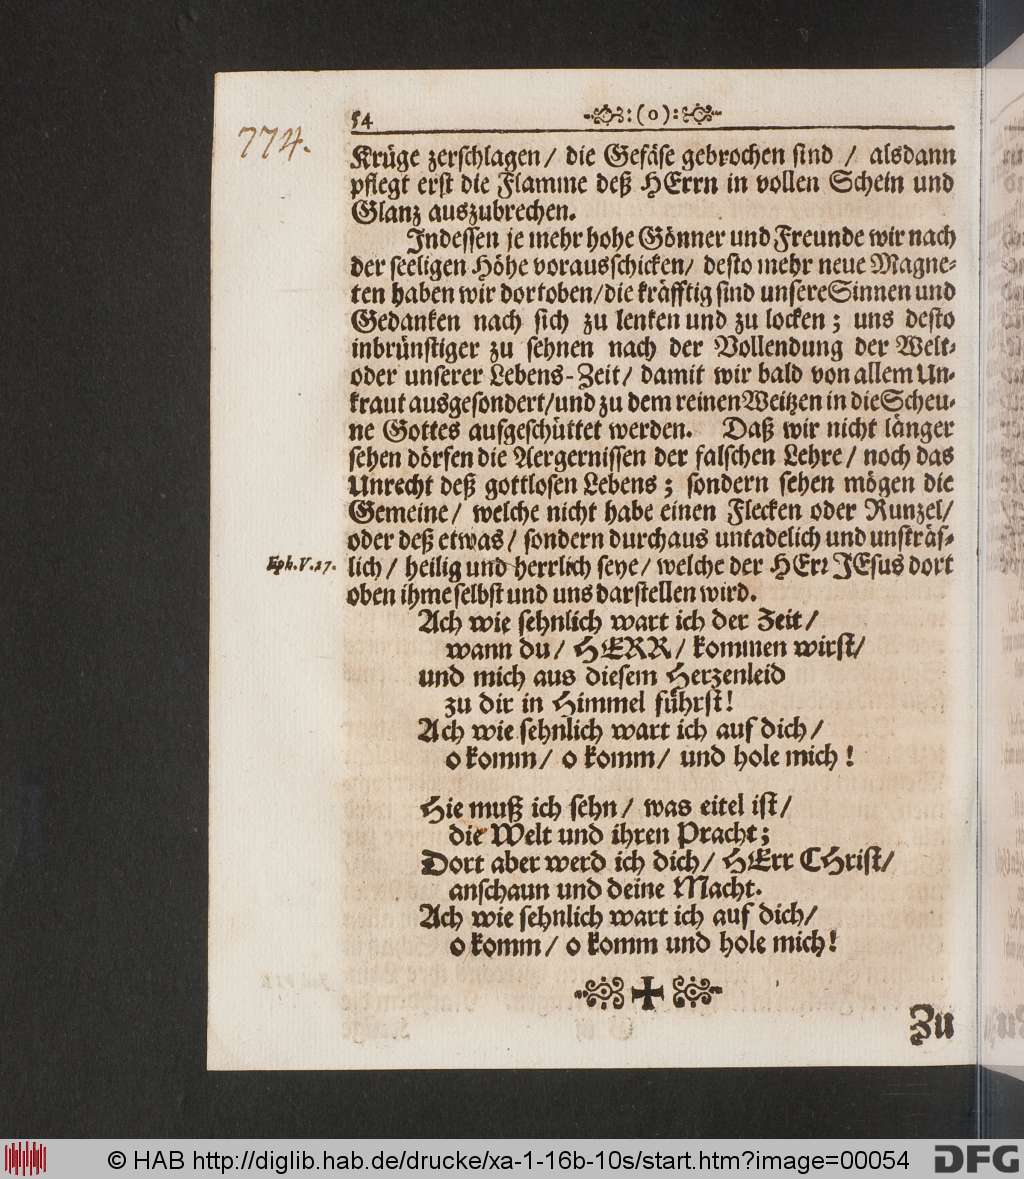 774.
54 :(o):
Krüge zerschlagen/ die Gefäse gebrochen sind / alsdann
pflegt erst die Flamme deß HErrn in vollen Schein und
Glanz auszubrechen.
Indessen je mehr hohe Gönner und Freunde wir nach
der seeligen Höhe vorausschicken/ desto mehr neue Magne-
ten haben wir dortoben/die kräfftig sind unsere Sinnen und
Gedanken nach sich zu lenken und zu locken; uns desto
inbrünstiger zu sehnen nach der Vollendung der Welt-
oder unserer Lebens-Zeit/ damit wir bald von allem Un-
kraut ausgesondert/und zu dem reinen Weitzen in die Scheu-
ne Gottes aufgeschüttet werden. Daß wir nicht länger
sehen dörfen die Aergernissen der falschen Lehre/ noch das
Unrecht deß gottlosen Lebens; sondern sehen mögen die
Gemeine/ welche nicht habe einen Flecken oder Runzel/
oder deß etwas/ sondern durchaus untadelich und unsträf-
Eph. V. 27. lich/ heilig und herrlich seye/ welche der HErr JEsus dort
oben ihme selbst und uns darstellen wird.
Ach wie sehnlich wart ich der Zeit/
wann du/ HERR/ kommen wirst/
und mich aus diesem Herzenleid
zu dir in Himmel führst!
Ach wie sehnlich wart ich auf dich/
o komm/ o komm/ und hole mich!
Hie muß ich sehn/ was eitel ist/
die Welt und ihren Pracht;
Dort aber werd ich dich/ HErr CHrist/
anschaun und deine Macht.
Ach wie sehnlich wart ich auf dich/
o komm/ o komm und hole mich!
Zu
© HAB http://diglib.hab.de/drucke/xa-1-16b-10s/start.htm?image=00054
DFG